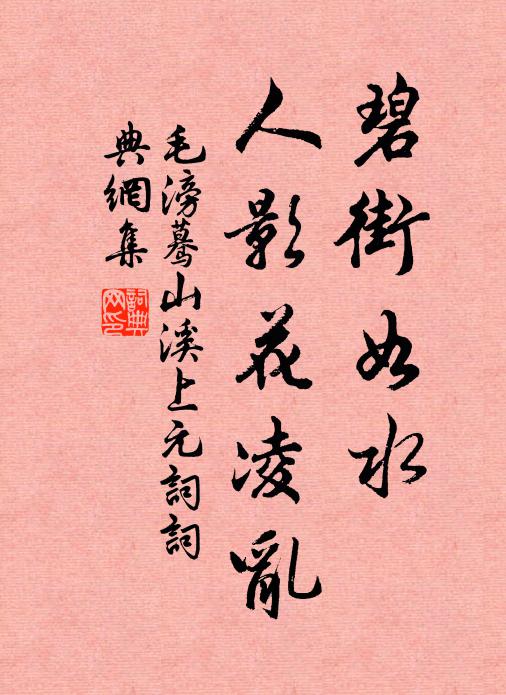 碧街如水
人影花凌亂
毛滂驀山溪上元詞詞
典網集
詞典網印